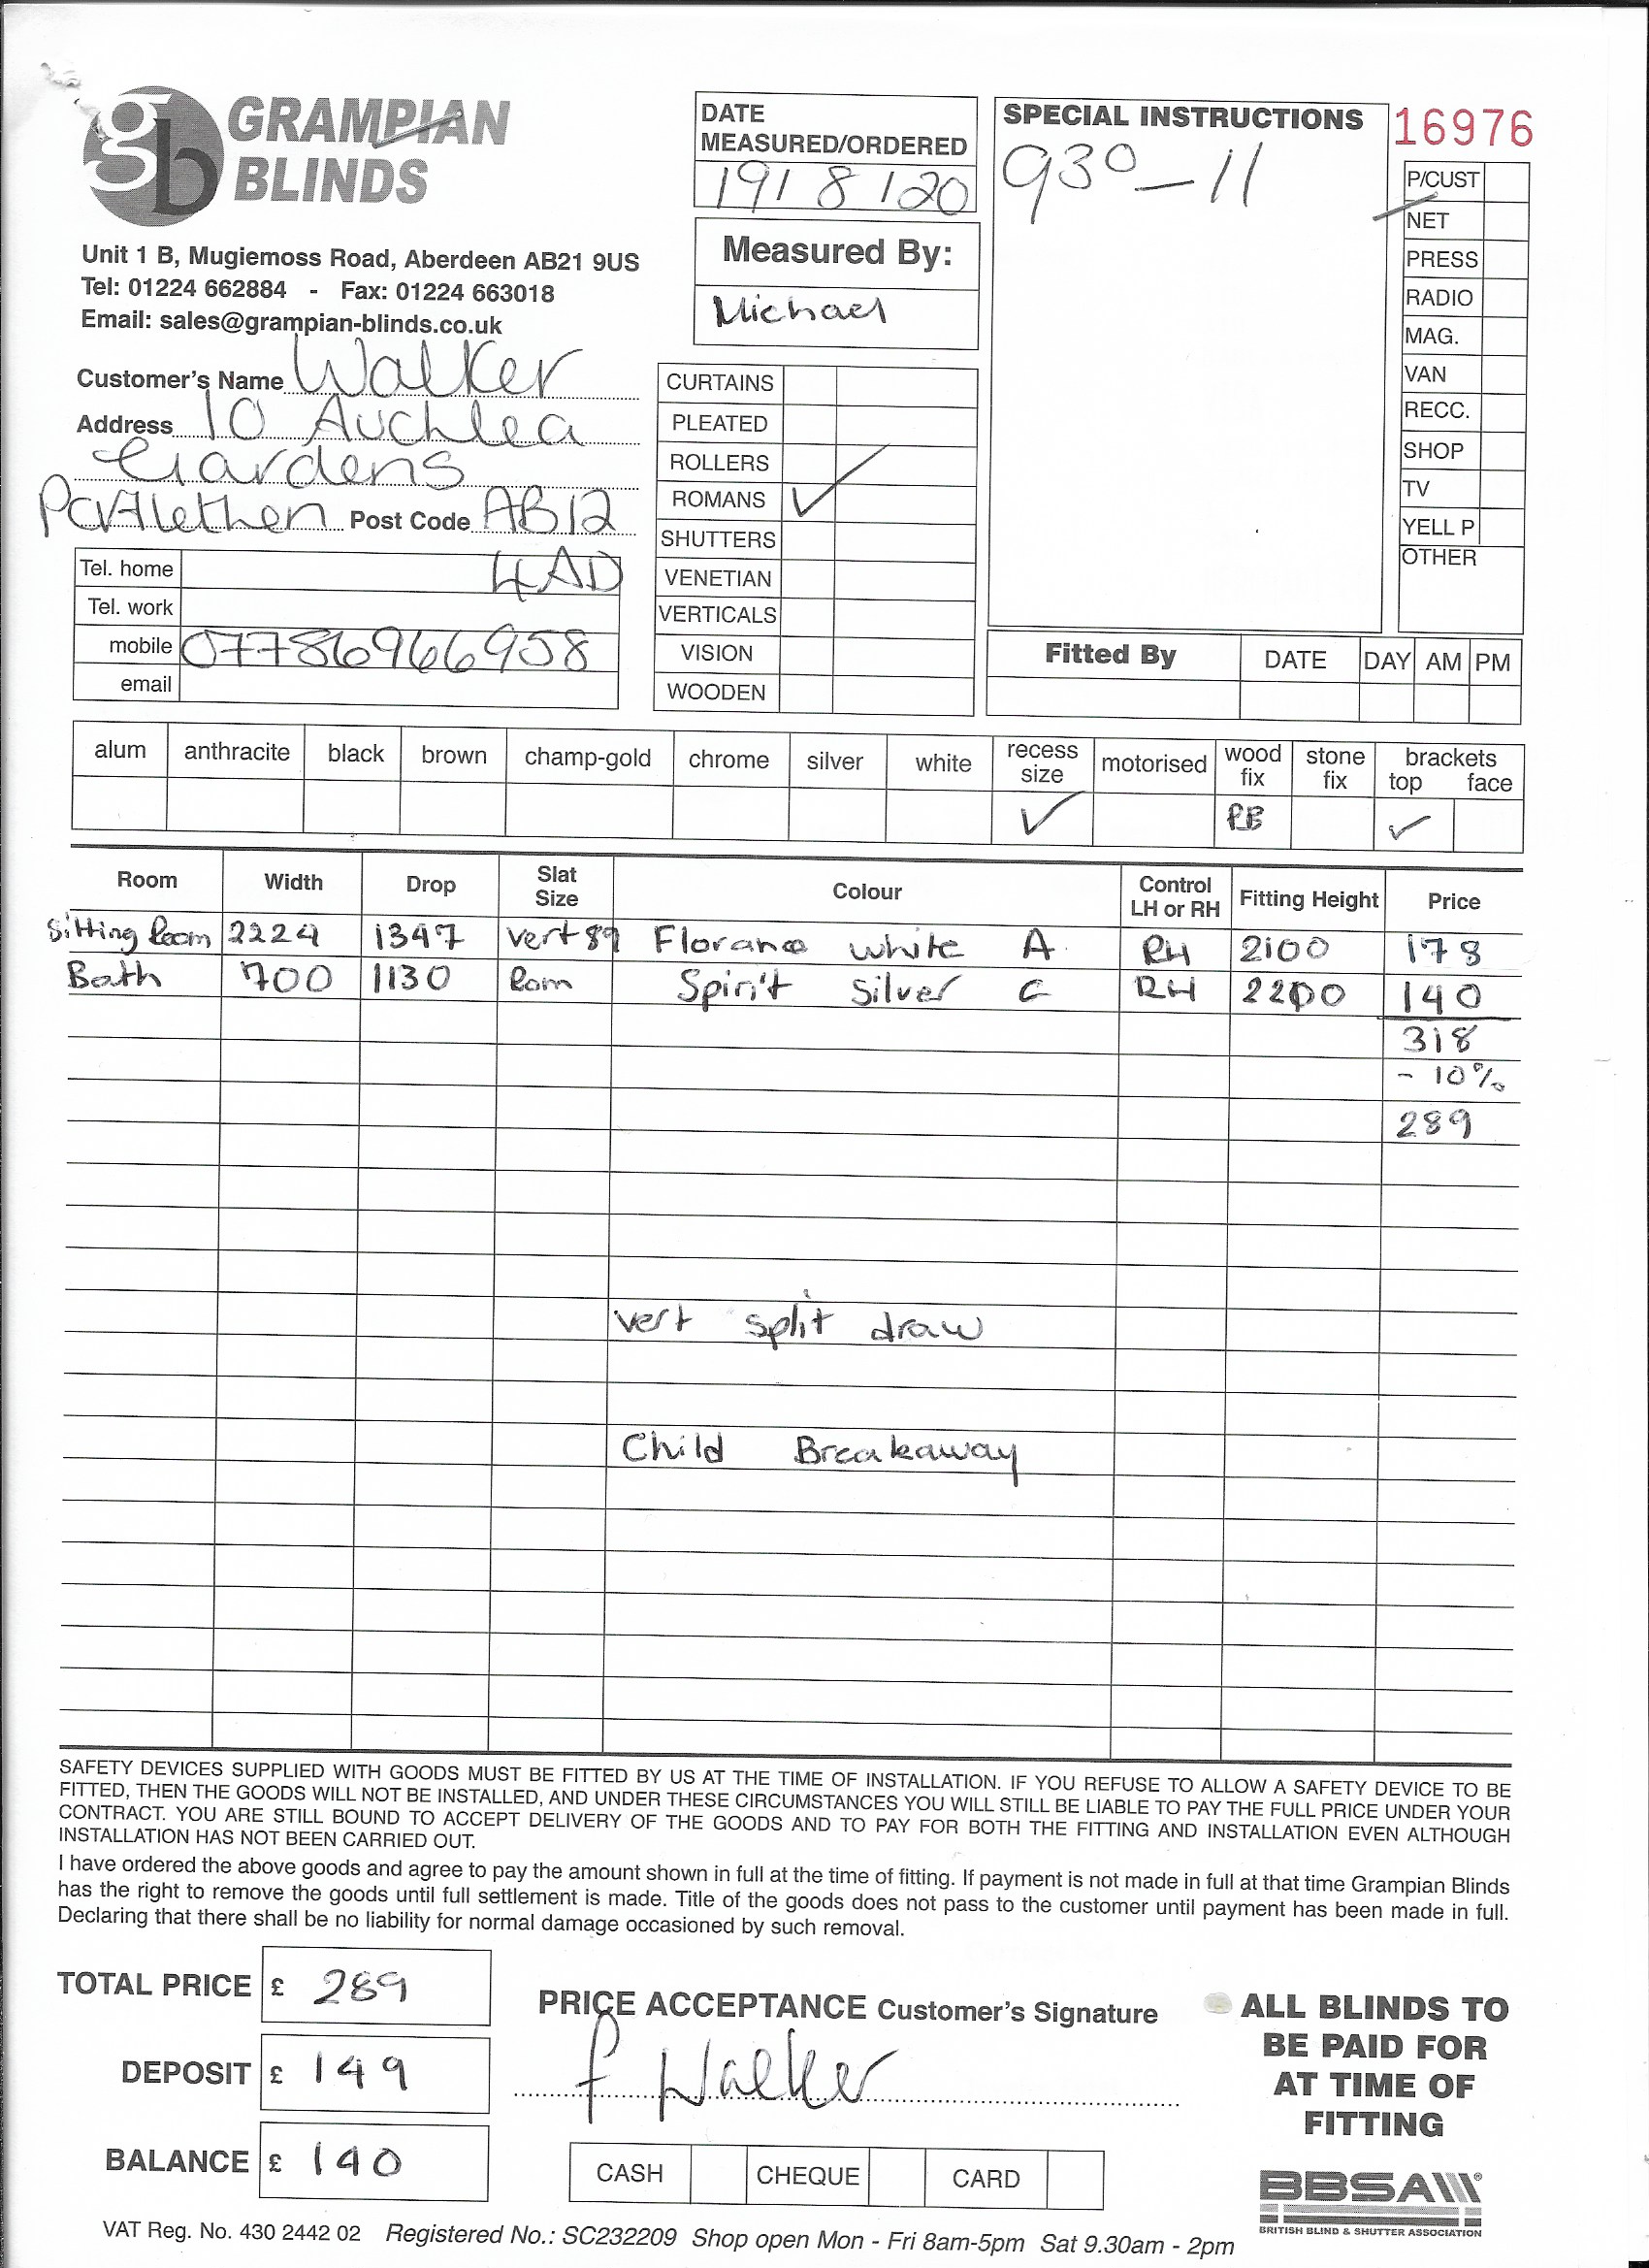 gb GRAMPIAN
BLINDS
Unit 1 B, Mugiemoss Road, Aberdeen AB21 9US
Tel: 01224 662884 - Fax: 01224 663018
Email: sales@grampian-blinds.co.uk
Customer's Name Walker
Address 10 Auchlea
Gardens
Portlethen Post Code AB12
4AD
Tel. home
Tel. work
mobile 07786966958
email
DATE
MEASURED/ORDERED
19/ 8 /20
Measured By:
Michael
CURTAINS
PLEATED
ROLLERS
ROMANS ✓
SHUTTERS
VENETIAN
VERTICALS
VISION
WOODEN
SPECIAL INSTRUCTIONS
930 - 11
16976
P/CUST
NET
PRESS
RADIO
MAG.
VAN
RECC.
SHOP
TV
YELL P
OTHER
Fitted By DATE DAY AM PM
alum anthracite black brown champ-gold chrome silver white recess size motorised wood fix stone fix brackets top face
✓ PB ✓
Room Width Drop Slat Size Colour Control LH or RH Fitting Height Price
Sitting Room 2224 1347 vert 89 Florance white A RH 2100 178
Bath 700 1130 Rom Spirit Silver C RH 2200 140
318
- 10%
289
vert split draw
Child Breakaway
SAFETY DEVICES SUPPLIED WITH GOODS MUST BE FITTED BY US AT THE TIME OF INSTALLATION. IF YOU REFUSE TO ALLOW A SAFETY DEVICE TO BE
FITTED, THEN THE GOODS WILL NOT BE INSTALLED, AND UNDER THESE CIRCUMSTANCES YOU WILL STILL BE LIABLE TO PAY THE FULL PRICE UNDER YOUR
CONTRACT. YOU ARE STILL BOUND TO ACCEPT DELIVERY OF THE GOODS AND TO PAY FOR BOTH THE FITTING AND INSTALLATION EVEN ALTHOUGH
INSTALLATION HAS NOT BEEN CARRIED OUT.
I have ordered the above goods and agree to pay the amount shown in full at the time of fitting. If payment is not made in full at that time Grampian Blinds
has the right to remove the goods until full settlement is made. Title of the goods does not pass to the customer until payment has been made in full.
Declaring that there shall be no liability for normal damage occasioned by such removal.
TOTAL PRICE £ 289
DEPOSIT £ 149
BALANCE £ 140
PRICE ACCEPTANCE Customer's Signature
F Walker
CASH CHEQUE CARD
ALL BLINDS TO
BE PAID FOR
AT TIME OF
FITTING
BBSA
BRITISH BLIND & SHUTTER ASSOCIATION
VAT Reg. No. 430 2442 02 Registered No.: SC232209 Shop open Mon - Fri 8am-5pm Sat 9.30am - 2pm